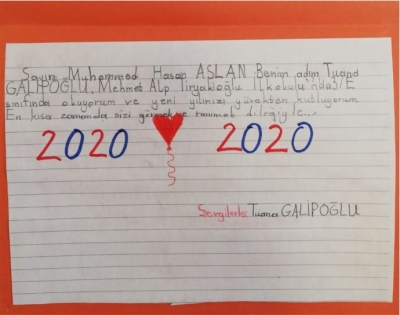 Sayın Muhammed Hasan ASLAN Benim adım Tuana
GALİPOĞLU. Mehmet Alp Tiryakioğlu İlkokulu'nda 3/E
sınıfında okuyorum ve yeni yılınızı yürekten kutluyorum
En kısa zamanda sizi görmek ve tanımak dileğiyle...
2020 2020
Sevgilerle Tuana GALİPOĞLU